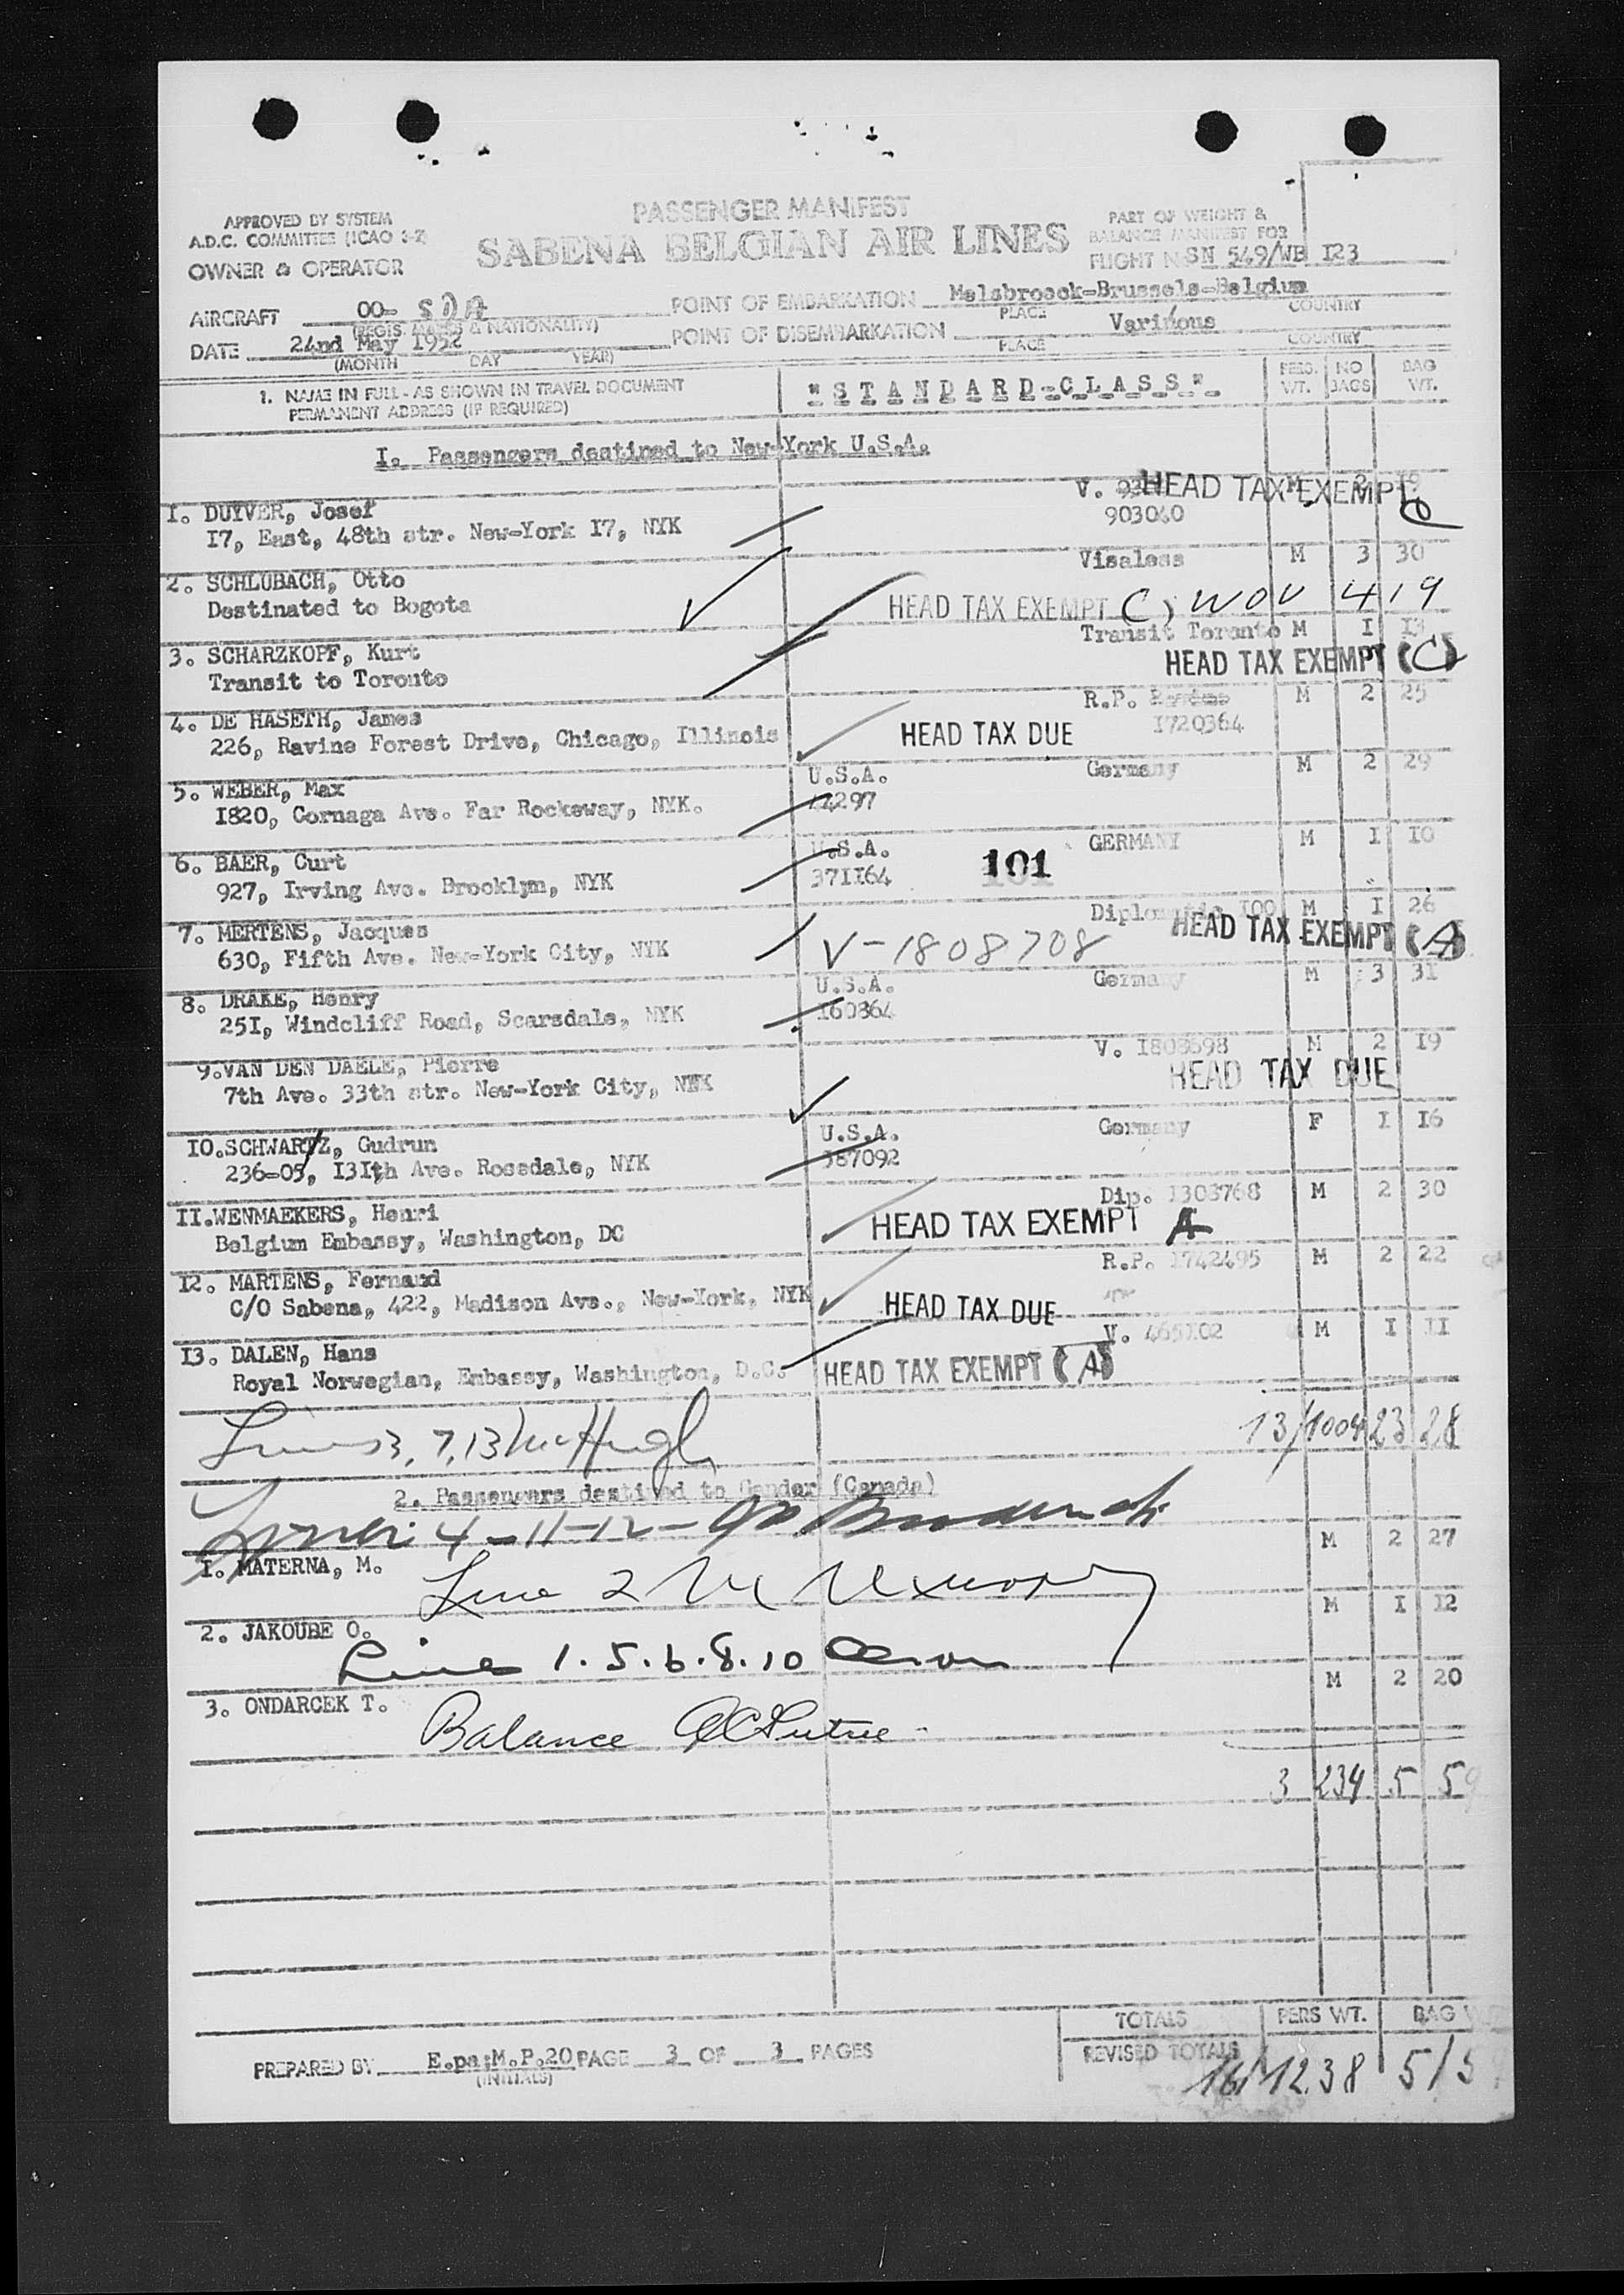 PASSENGER MANIFEST
SABENA BELGIAN AIR LINES
APPROVED BY SYSTEM
A.D.C. COMMITTEE (ICAO 3-2)
OWNER & OPERATOR
PART OF WEIGHT &
BALANCE MANIFEST FOR
FLIGHT N SN 549/WB I23
AIRCRAFT OO- SDA
(REGIS. MARKS & NATIONALITY)
POINT OF EMBARKATION Melsbroeck-Brussels-Belgium
PLACE COUNTRY
DATE 24nd May 1952
(MONTH DAY YEAR)
POINT OF DISEMBARKATION Varinous
PLACE COUNTRY
1. NAME IN FULL - AS SHOWN IN TRAVEL DOCUMENT
PERMANENT ADDRESS (IF REQUIRED)
"STANDARD-CLASS"
PERS. WT. NO BAGS BAG WT.
I. Passengers destined to New-York U.S.A.
I. DUYVER, Josef V. HEAD TAX EXEMPT M 2
I7, East, 48th str. New-York I7, NYK 903040
2. SCHLUBACH, Otto Visaless M 3 30
Destinated to Bogota HEAD TAX EXEMPT C) WOV 419
3. SCHARZKOPF, Kurt Transit Toronto M I I3
Transit to Toronto HEAD TAX EXEMPT (C)
4. DE HASETH, James R.P. M 2 25
226, Ravine Forest Drive, Chicago, Illinois HEAD TAX DUE I720364
5. WEBER, Max U.S.A. Germany M 2 29
I820, Cornaga Ave. Far Rockeway, NYK. 44297
6. BAER, Curt U.S.A. GERMANY M I I0
927, Irving Ave. Brooklyn, NYK 37II64 101
7. MERTENS, Jacques Diplomatic I00 M I 26
630, Fifth Ave. New-York City, NYK V-1808708 HEAD TAX EXEMPT (A)
8. DRAKE, Henry U.S.A. Germany M 3 31
25I, Windcliff Road, Scarsdale, NYK I60364
9. VAN DEN DAELE, Pierre V. I808698 M 2 I9
7th Ave. 33th str. New-York City, NYK HEAD TAX DUE
I0. SCHWARTZ, Gudrun U.S.A. Germany F I I6
236-05, I3Ith Ave. Rosedale, NYK 387092
II. WENMAEKERS, Henri Dip. I308768 M 2 30
Belgium Embassy, Washington, DC HEAD TAX EXEMPT A
I2. MARTENS, Fernand R.P. I742495 M 2 22
C/O Sabena, 422, Madison Ave., New-York, NYK HEAD TAX DUE
I3. DALEN, Hans V. 465I02 M I II
Royal Norwegian, Embassy, Washington, D.C. HEAD TAX EXEMPT (A)
Lines 3, 7, 13 McHugh 13/1004 23 28
2. Passengers destined to Gander (Canada)
4-11-12-
I. MATERNA, M. M 2 27
Line 2
2. JAKOUBE O. M I I2
Line 1.5.6.8.10
3. ONDARCEK T. M 2 20
Balance
3 234 5 59
TOTALS PERS WT. BAG
REVISED TOTALS 16/1238 5/5
PREPARED BY E.pa;M.P.20 PAGE 3 OF 3 PAGES
(INITIALS)